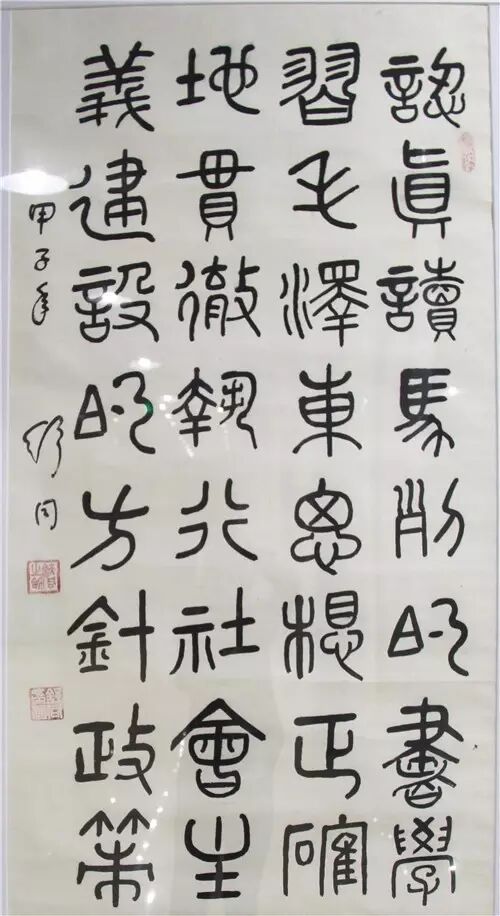 認眞讀馬列的書學
習毛澤東思想正確
地貫徹執行社會主
義建設的方針政策
甲子年 舒同